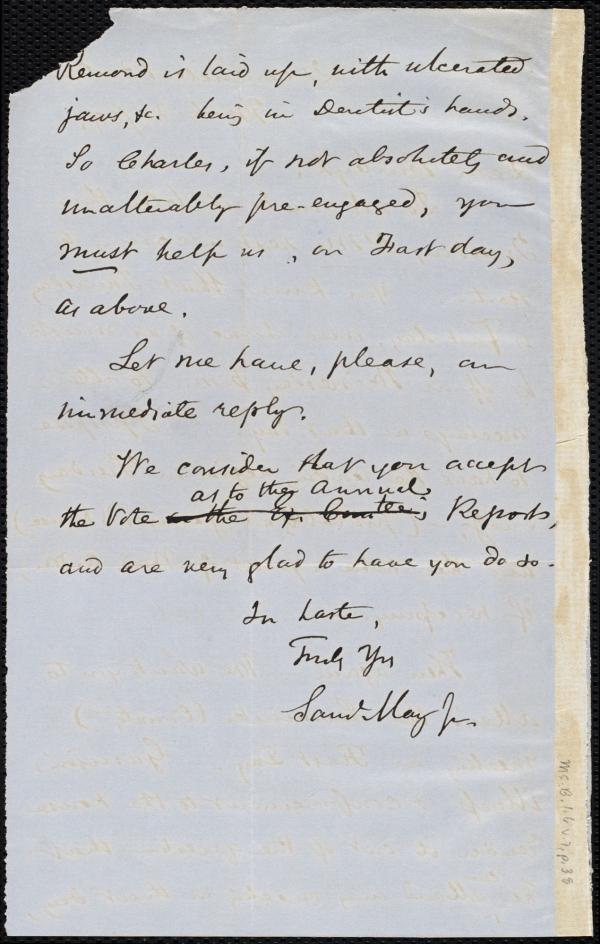 Remond is laid up, with ulcerated
jaws, &c. being in Dentist's hands.
So Charles, if not absolutely and
unalterably pre-engaged, you
must help us, on Fast day,
as above.
Let me have, please, an
immediate reply.
We consider that you accept
as to the Annual
the Vote the Ex. Comtee's Reports,
and are very glad to have you do so.
In haste,
Truly Yrs
Saml. May Jr.
Ms. B. 1. 6 v. 7, p. 38